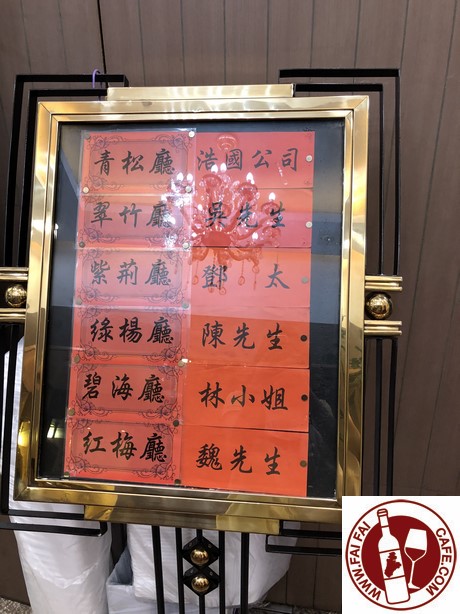 青松廳 浩國公司
翠竹廳 吳先生
紫荊廳 鄧太
綠楊廳 陳先生
碧海廳 林小姐
紅梅廳 魏先生
WWW.FAI FAI CAFE.COM